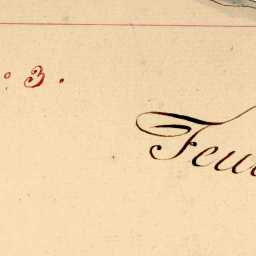 : 3.
Feu